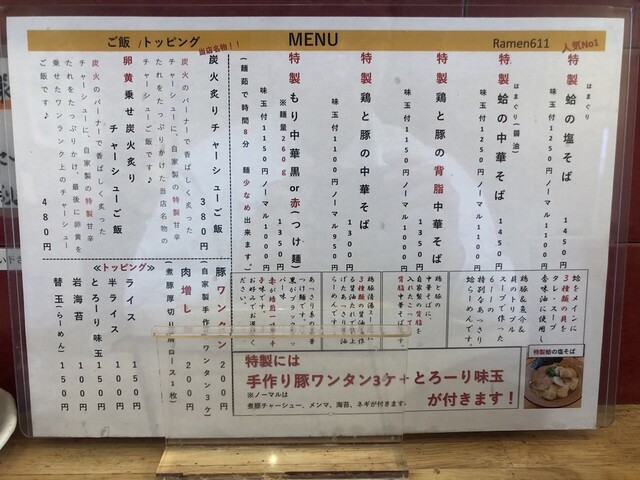 MENU
Ramen611
人気No1
はまぐり
特製 蛤の塩そば 1450円
味玉付1250円ノーマル1100円
はまぐり(醤油)
特製 蛤の中華そば 1450円
味玉付1250円ノーマル1100円
特製 鶏と豚の背脂中華そば 1350円
味玉付1150円ノーマル1000円
特製 鶏と豚の中華そば 1300円
味玉付1100円ノーマル950円
特製 もり中華黒or赤(つけ麺) 1350円
※麺量260g
味玉付1150円ノーマル1000円
(麺茹で時間8分 麺少なめ出来ます。)
蛤をメインに
3種類の貝を
タレ・スープ
香味油に使用し
鶏豚&魚介&
貝のトリプル
スープで作った
特別なあっさり
蛤らーめんです。
鶏と豚の
中華そばに、
自家製の背脂を
背脂中華そばです。
特製蛤の塩そば
特製には
手作り豚ワンタン3ケ+とろーり味玉
が付きます!
※ノーマルは
煮豚チャーシュー、メンマ、海苔、ネギが付きます。
ご飯 /トッピング
当店名物!!
炭火炙りチャーシューご飯 380円
炭火のバーナーで香ばしく炙った
チャーシューに、自家製の特製甘辛
たれをたっぷりかけた当店名物の
チャーシューご飯です♪
卵黄乗せ炭火炙り
チャーシューご飯 480円
炭火のバーナーで香ばしく炙った
チャーシューに、自家製の特製甘辛
たれをたっぷりかけ、最後に卵黄を
乗せたワンランク上のチャーシュー
ご飯です♪
≪トッピング≫
豚ワンタン 200円
(自家製手作りワンタン3ケ)
肉増し 200円
(煮豚厚切り肩ロース1枚)
ライス 150円
半ライス 100円
とろーり味玉 150円
岩海苔 150円
替玉(らーめん) 150円